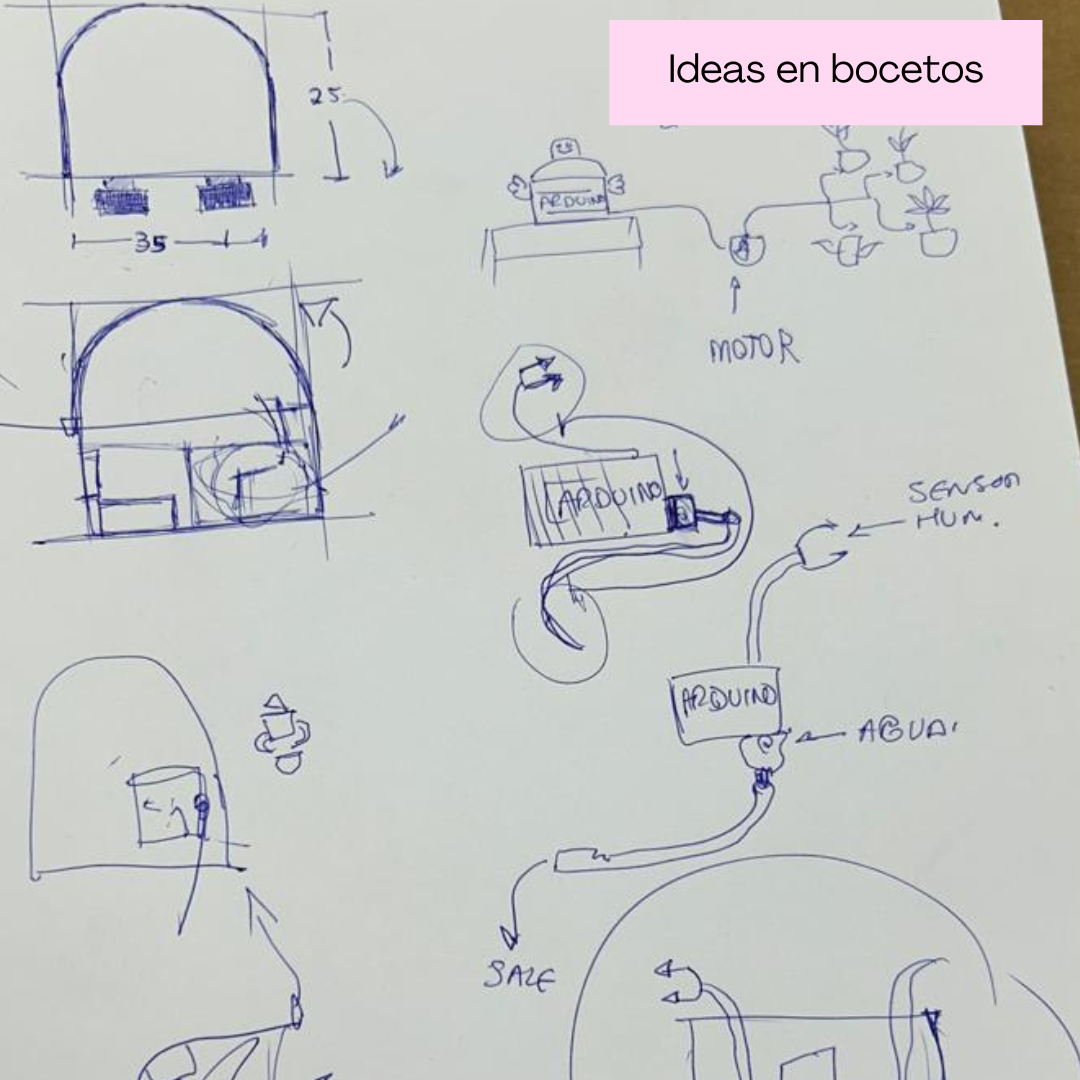 Ideas en bocetos
25
ARDUINO
35
MOTOR
ARDUINO
SENSOR
HUM.
ARDUINO
AGUA.
SALE